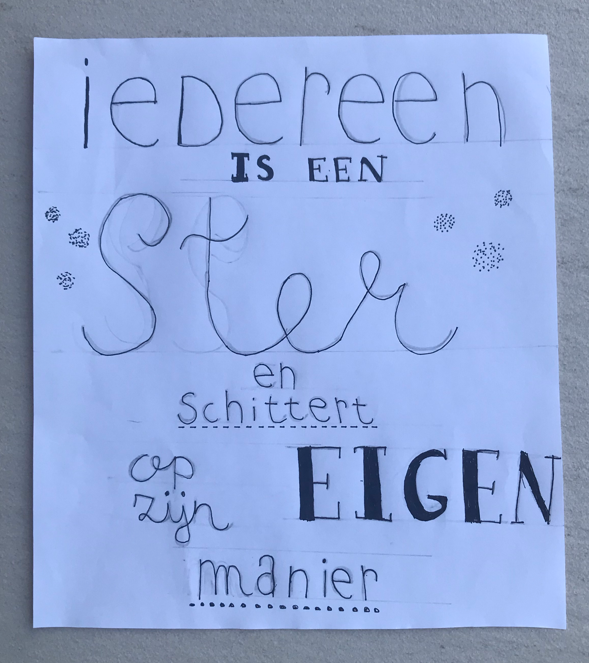 iedereen
IS EEN
Ster
en
Schittert
op
zijn EIGEN
manier